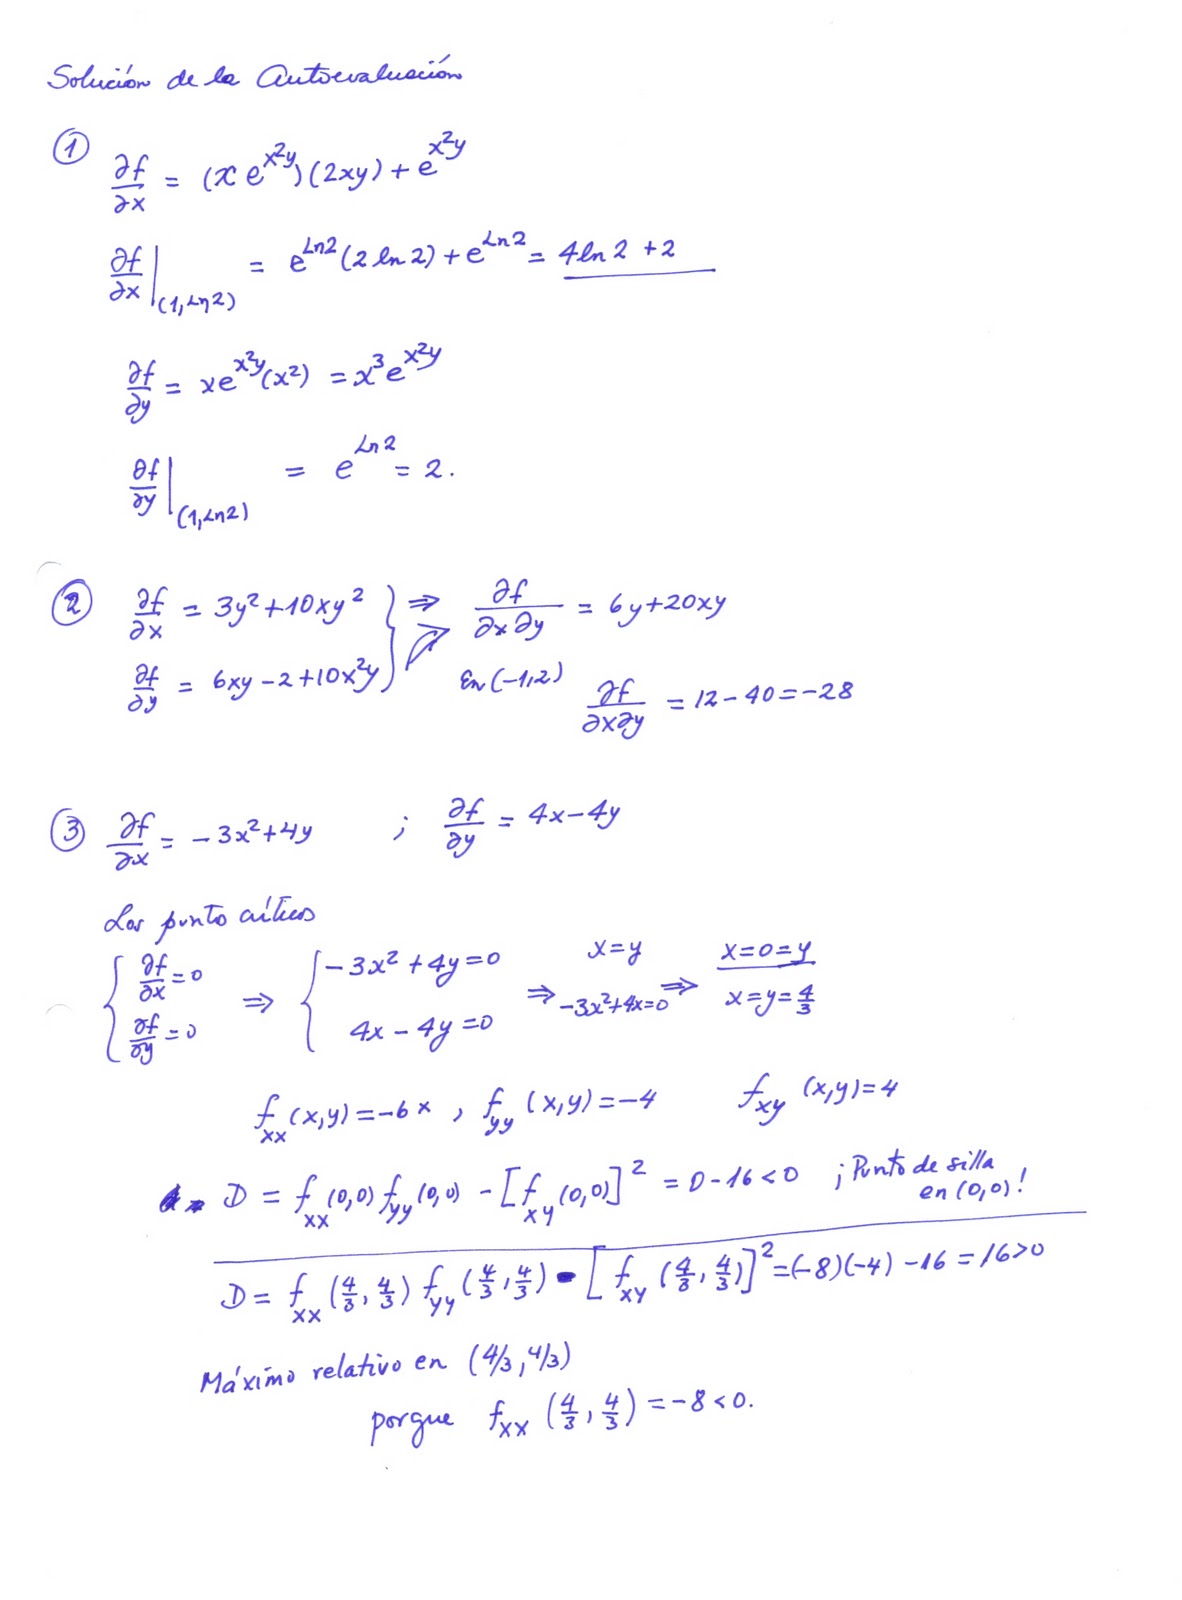 Solución de la Autoevaluación
① ∂f/∂x = (x e^{x²y})(2xy) + e^{x²y}
∂f/∂x |_(1,Ln2) = e^{Ln2}(2 ln 2) + e^{Ln2} = 4ln 2 + 2
∂f/∂y = xe^{x²y}(x²) = x³e^{x²y}
∂f/∂y |_(1,Ln2) = e^{Ln2} = 2.
② ∂f/∂x = 3y²+10xy² } ⇒ ∂f/∂x∂y = 6y+20xy
∂f/∂y = 6xy-2+10x²y
En (-1,2) ∂f/∂x∂y = 12-40=-28
③ ∂f/∂x = -3x²+4y ; ∂f/∂y = 4x-4y
Los punto críticos
{ ∂f/∂x=0 ⇒ { -3x²+4y=0 ⇒ x=y ⇒ x=0=y
∂f/∂y=0 4x-4y=0 -3x²+4x=0 x=y=4/3
f_xx(x,y)=-6x , f_yy(x,y)=-4 f_xy(x,y)=4
D = f_xx(0,0) f_yy(0,0) - [f_xy(0,0)]² = 0-16<0 ¡Punto de silla
en (0,0)!
D = f_xx(4/3,4/3) f_yy(4/3,4/3) - [f_xy(4/3,4/3)]²=(-8)(-4)-16=16>0
Máximo relativo en (4/3,4/3)
porque f_xx(4/3,4/3)=-8<0.